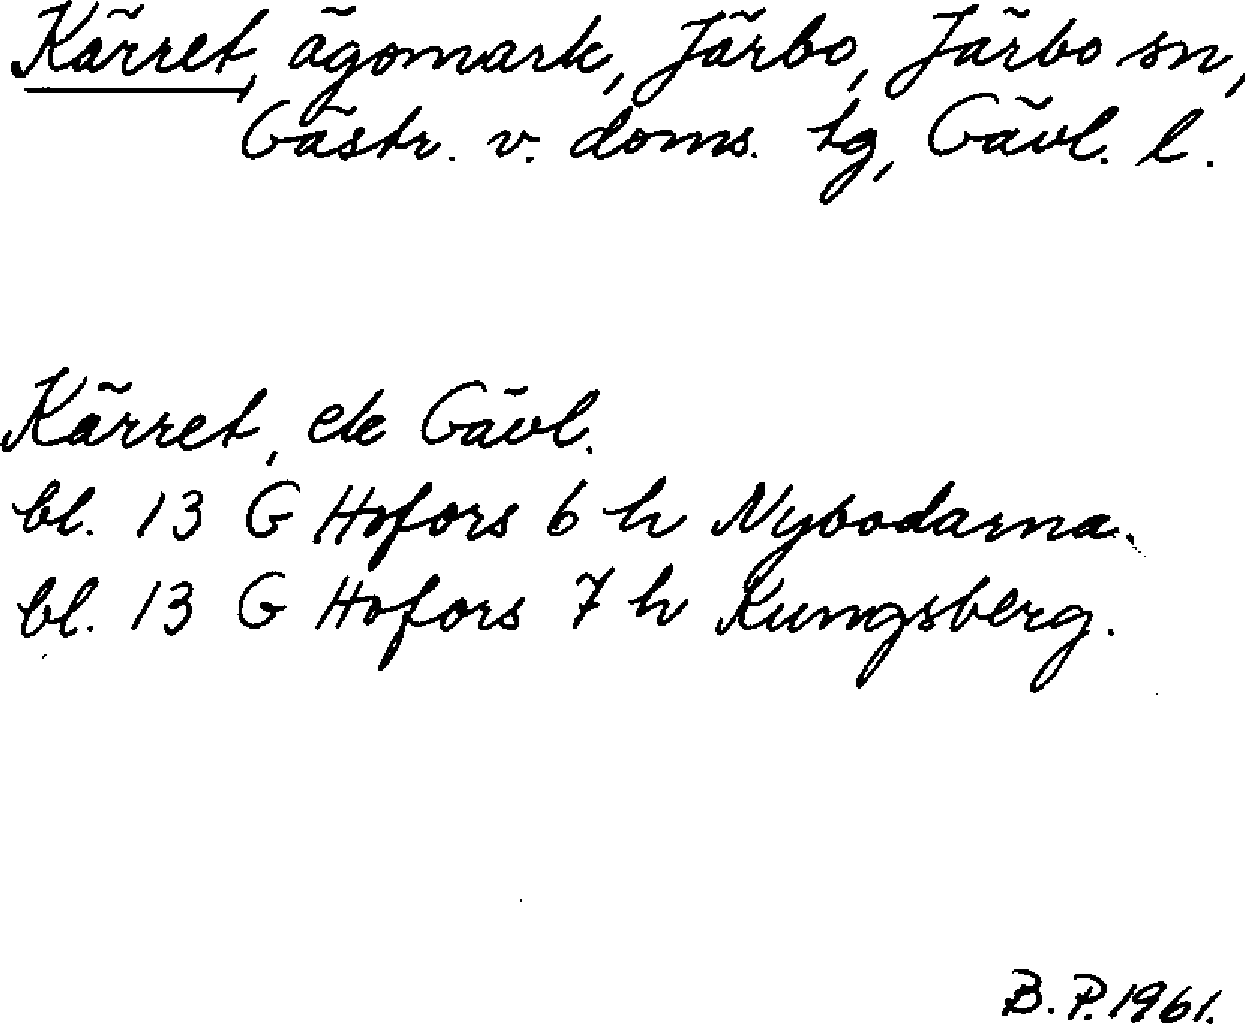 Kärret, ägomark, Järbo, Järbo sn,
Gästr. v. doms. tg, Gävl. l.
Kärret, ek Gävl.
bl. 13 G Hofors 6 h Nybodarna.
bl. 13 G Hofors 7 h Kungsberg.
B.P. 1961.